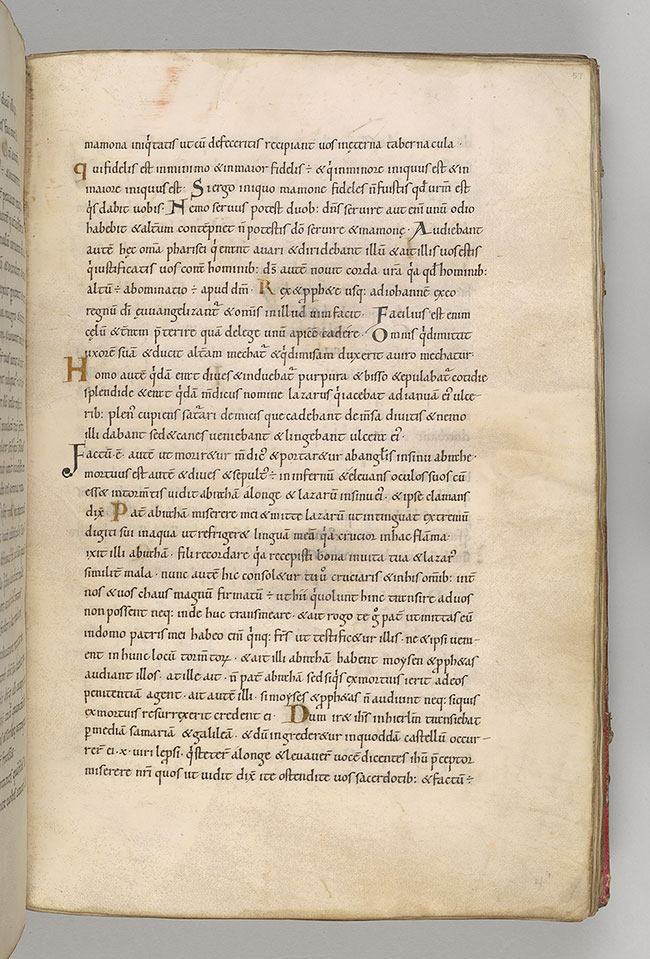 mamona iniq̇tatis ut cū defeceritis recipiant vos ineterna tabernacula ·
quifidelis est inminimo & inmaior fidelis ÷ & q̇ inminore iniquus est & in
maiore iniquus est · Siergo iniquo mamone fideles n̄ fuistis qd̄ urm̄ est
q̇s dabit vobis · Nemo servus potest duob: dn̄s servire aut em̄ unū odio
habebit & altum contēpnet n̄ potestis dō servire & mamone · Audiebant
autē hec oma pharisei q̇ erant avari & diridebant illū & ait illis vos estis
q̇ iustificatis vos corā hominib: ds̄ autē novit corda vr̄a q̇a qd̄ hominib:
altū ÷ abominacio ÷ apud dm̄ · Rex & pph&e usq: adiohannē exeo
regnū dī euuangelizant̄ & omnis inillud vim facit · Facilius est enim
celū & trāın p̄terire quā delege unū apicē cadere · Omnis q̇ dimittit
uxorē suā & ducit altam mechat̄ & q̇ dimissam duxerit aviro mechatur ·
Homo autē q̇dā erat dives & induebat̄ purpura & bisso & epulabat̄ cotidie
splendide & erat q̇dā mdicus nomine lazarus q̇ iacebat adianuā ei' ulce-
rib: plen' cupiens sat̄ari demicis que cadebant demsa divitis & nemo
illi dabant sed & canes veniebant & lingebant ulcera ei' ·
Factū ē autē ut morir&ur mdic' & portar&ur abanglis insinu abrahe ·
mortuus est autē & dives & sepult' ÷ in infernū & elevans oculos suos cū
ess& intorm̄tis vidit abrahā alonge & lazarū insinu ei' · & ipse clamans
dix̄ Pat̄ abrahā miserere mei & mitte lazarū ut intinguat extremū
digiti sui inaqua ut refriger& linguā meā q̇a crucior inhac flāma ·
ixit illi abrahā · fili recordare q̇a recepisti bona invita tua & lazar'
similit̄ mala · nunc autē hic consol&ur tu ū cruciaris & inhis omīb: int̄
nos & vos chaus magnū firmatū ÷ ut hii q̇ volunt hinc transire advos
non possent neq: inde huc transmeare · & ait rogo te g̊ pat̄ ut mittas eū
indomo patris mei habeo em̄ q̇nq: fr̄s ut testific&ur illis · ne & ipsi veni-
ent in hunc locū tormtoꝝ · & ait illi abrahā habent moysen & pph&as
audiant illos · at ille ait · n̄ pat̄ abrahā sed siq̇s exmortuis ierit adeos
penitentiā agent · ait autē illi · si moyses & pph&as n̄ audiunt neq: siquis
exmortuis resurrexerit credent ei · Dum ir& ihs̄ inhierlm̄ transiebat
p̄ mediā samariā & galileā · & dū ingreder&ur inquoddā castellū occur-
rer̄ ei · x · viri lep̄si · q̇ steter̄ alonge & levauer̄ vocē dicentes ihū p̄ceptor
miserere nr̄i quos ut vidit dix̄ ite ostendite vos sacerdotib: & factū ÷